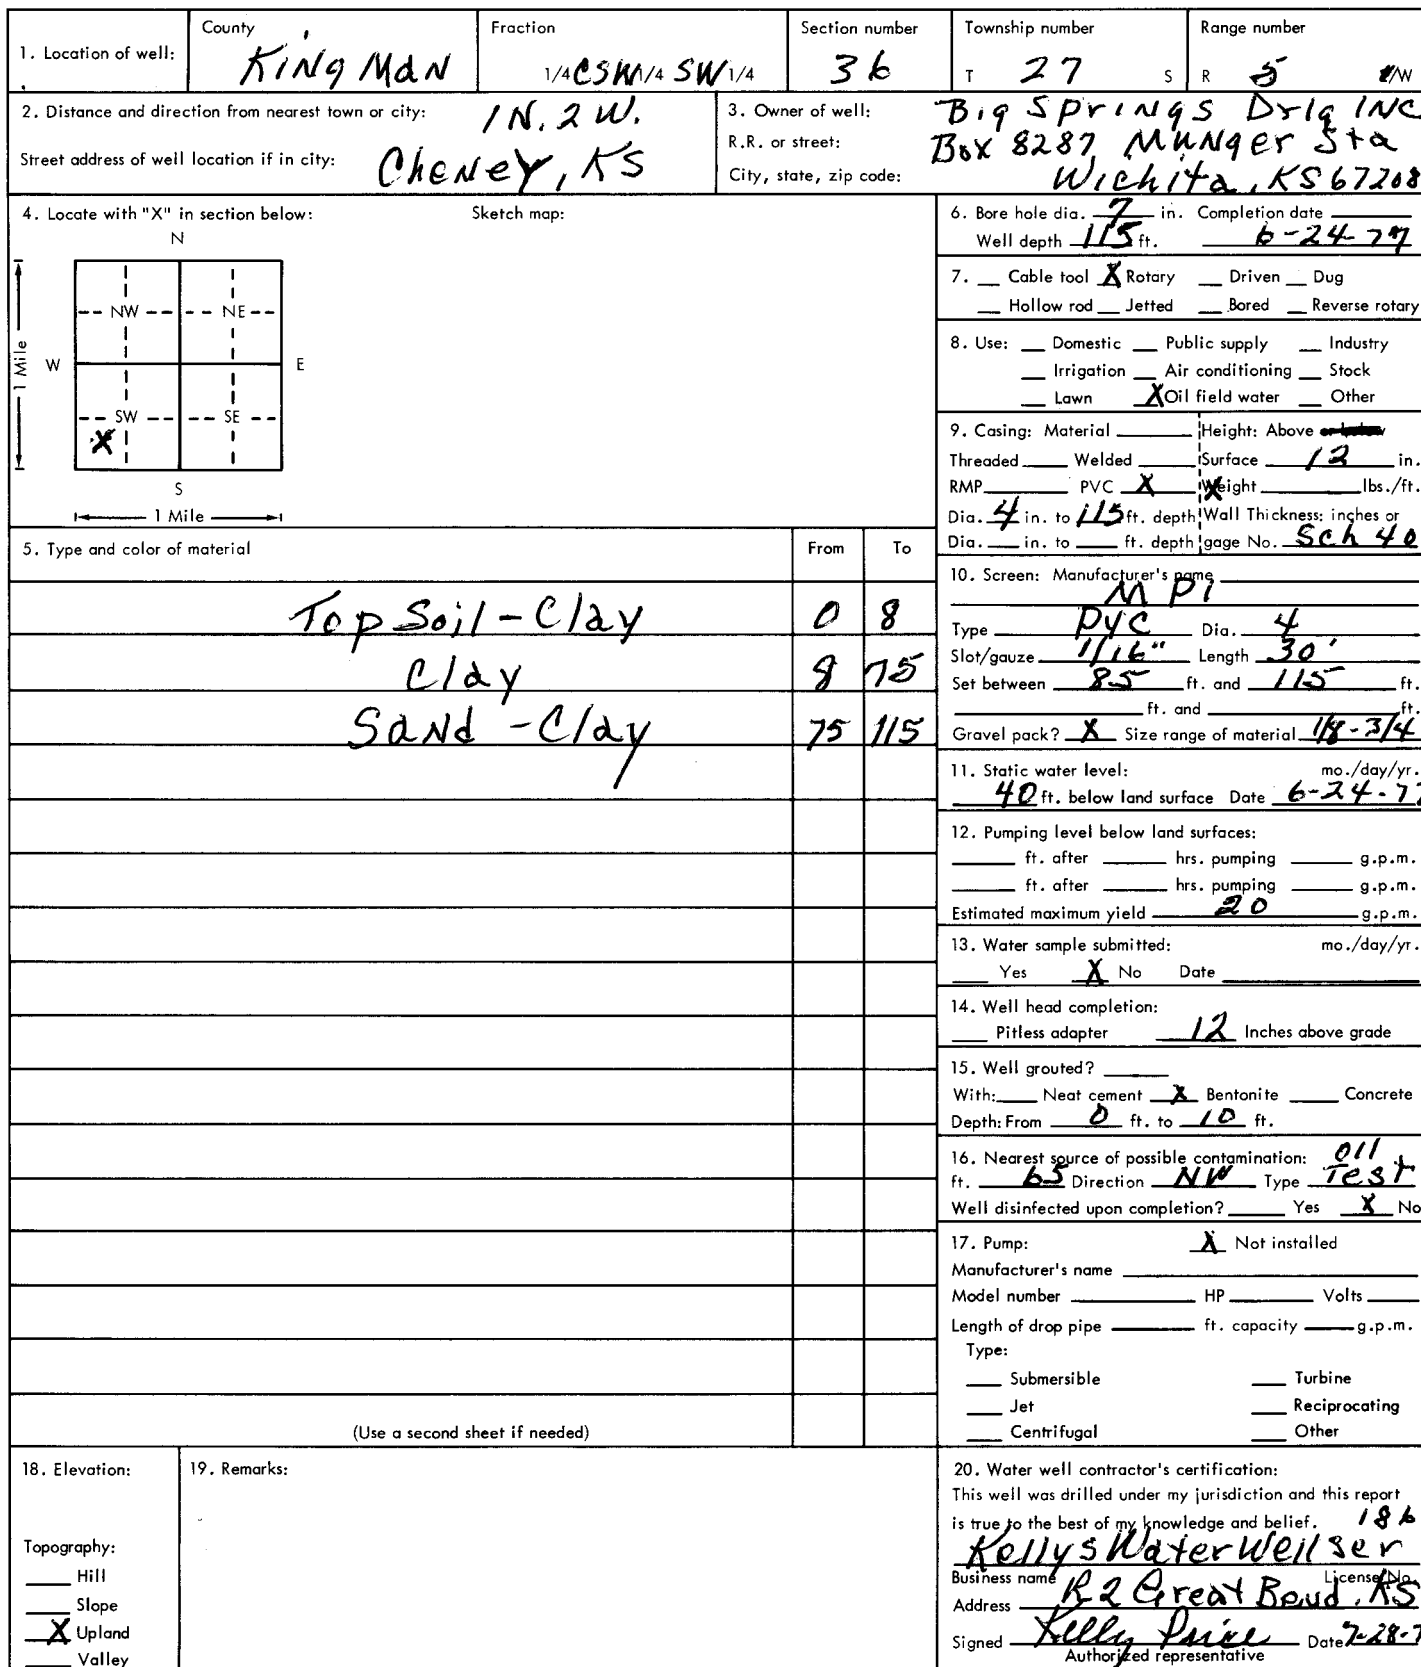 1. Location of well: County KingMan Fraction 1/4 CSW 1/4 SW 1/4 Section number 36 Township number T 27 S Range number R 5 E/W
2. Distance and direction from nearest town or city: 1N. 2W.
Street address of well location if in city: Cheney, KS
3. Owner of well: Big Springs Drlg INC
R.R. or street: Box 8287 Munger Sta
City, state, zip code: Wichita, KS 67208
4. Locate with "X" in section below: Sketch map:
N
NW NE
W E
1 Mile
SW SE
X
S
1 Mile
5. Type and color of material From To
Top Soil - Clay 0 8
Clay 8 75
Sand - Clay 75 115
(Use a second sheet if needed)
6. Bore hole dia. 7 in. Completion date
Well depth 115 ft. 6-24-77
7. Cable tool X Rotary Driven Dug
Hollow rod Jetted Bored Reverse rotary
8. Use: Domestic Public supply Industry
Irrigation Air conditioning Stock
Lawn X Oil field water Other
9. Casing: Material Height: Above or below
Threaded Welded Surface 12 in.
RMP PVC X Weight lbs./ft.
Dia. 4 in. to 115 ft. depth Wall Thickness: inches or
Dia. in. to ft. depth gage No. Sch 40
10. Screen: Manufacturer's name
M PI
Type PVC Dia. 4
Slot/gauze 1/16" Length 30'
Set between 85 ft. and 115 ft.
ft. and ft.
Gravel pack? X Size range of material 1/8-3/4
11. Static water level: mo./day/yr.
40 ft. below land surface Date 6-24-77
12. Pumping level below land surfaces:
ft. after hrs. pumping g.p.m.
ft. after hrs. pumping g.p.m.
Estimated maximum yield 20 g.p.m.
13. Water sample submitted: mo./day/yr.
Yes X No Date
14. Well head completion:
Pitless adapter 12 Inches above grade
15. Well grouted?
With: Neat cement X Bentonite Concrete
Depth: From 0 ft. to 10 ft.
16. Nearest source of possible contamination: Oil
ft. 65 Direction NW Type Test
Well disinfected upon completion? Yes X No
17. Pump: X Not installed
Manufacturer's name
Model number HP Volts
Length of drop pipe ft. capacity g.p.m.
Type:
Submersible Turbine
Jet Reciprocating
Centrifugal Other
18. Elevation:
Topography:
Hill
Slope
X Upland
Valley
19. Remarks:
20. Water well contractor's certification:
This well was drilled under my jurisdiction and this report
is true to the best of my knowledge and belief. 186
Kellys Water Well Ser
Business name License No.
Address R2 Great Bend, KS
Signed Kelly Price Date 7-28-7
Authorized representative